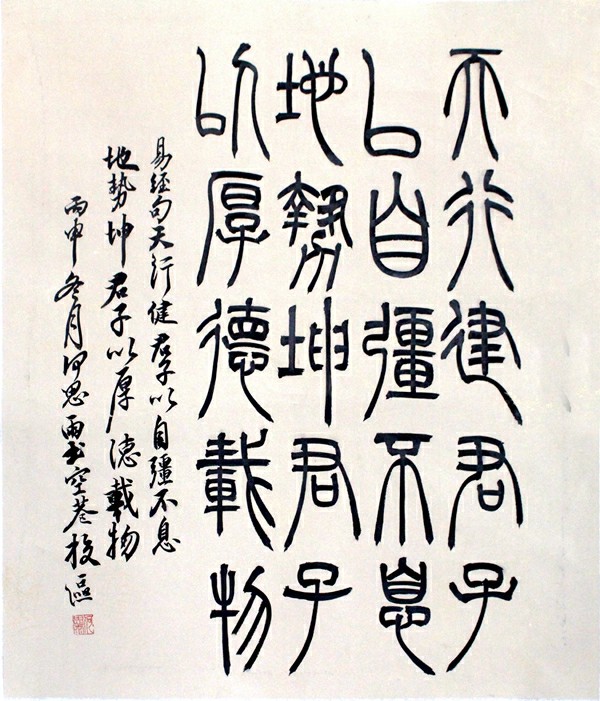 天行建君子
以自彊不息
地勢坤君子
以厚德載物
易經句天行健君子以自彊不息
地勢坤君子以厚德載物
丙申冬月何思雨书空巷校區